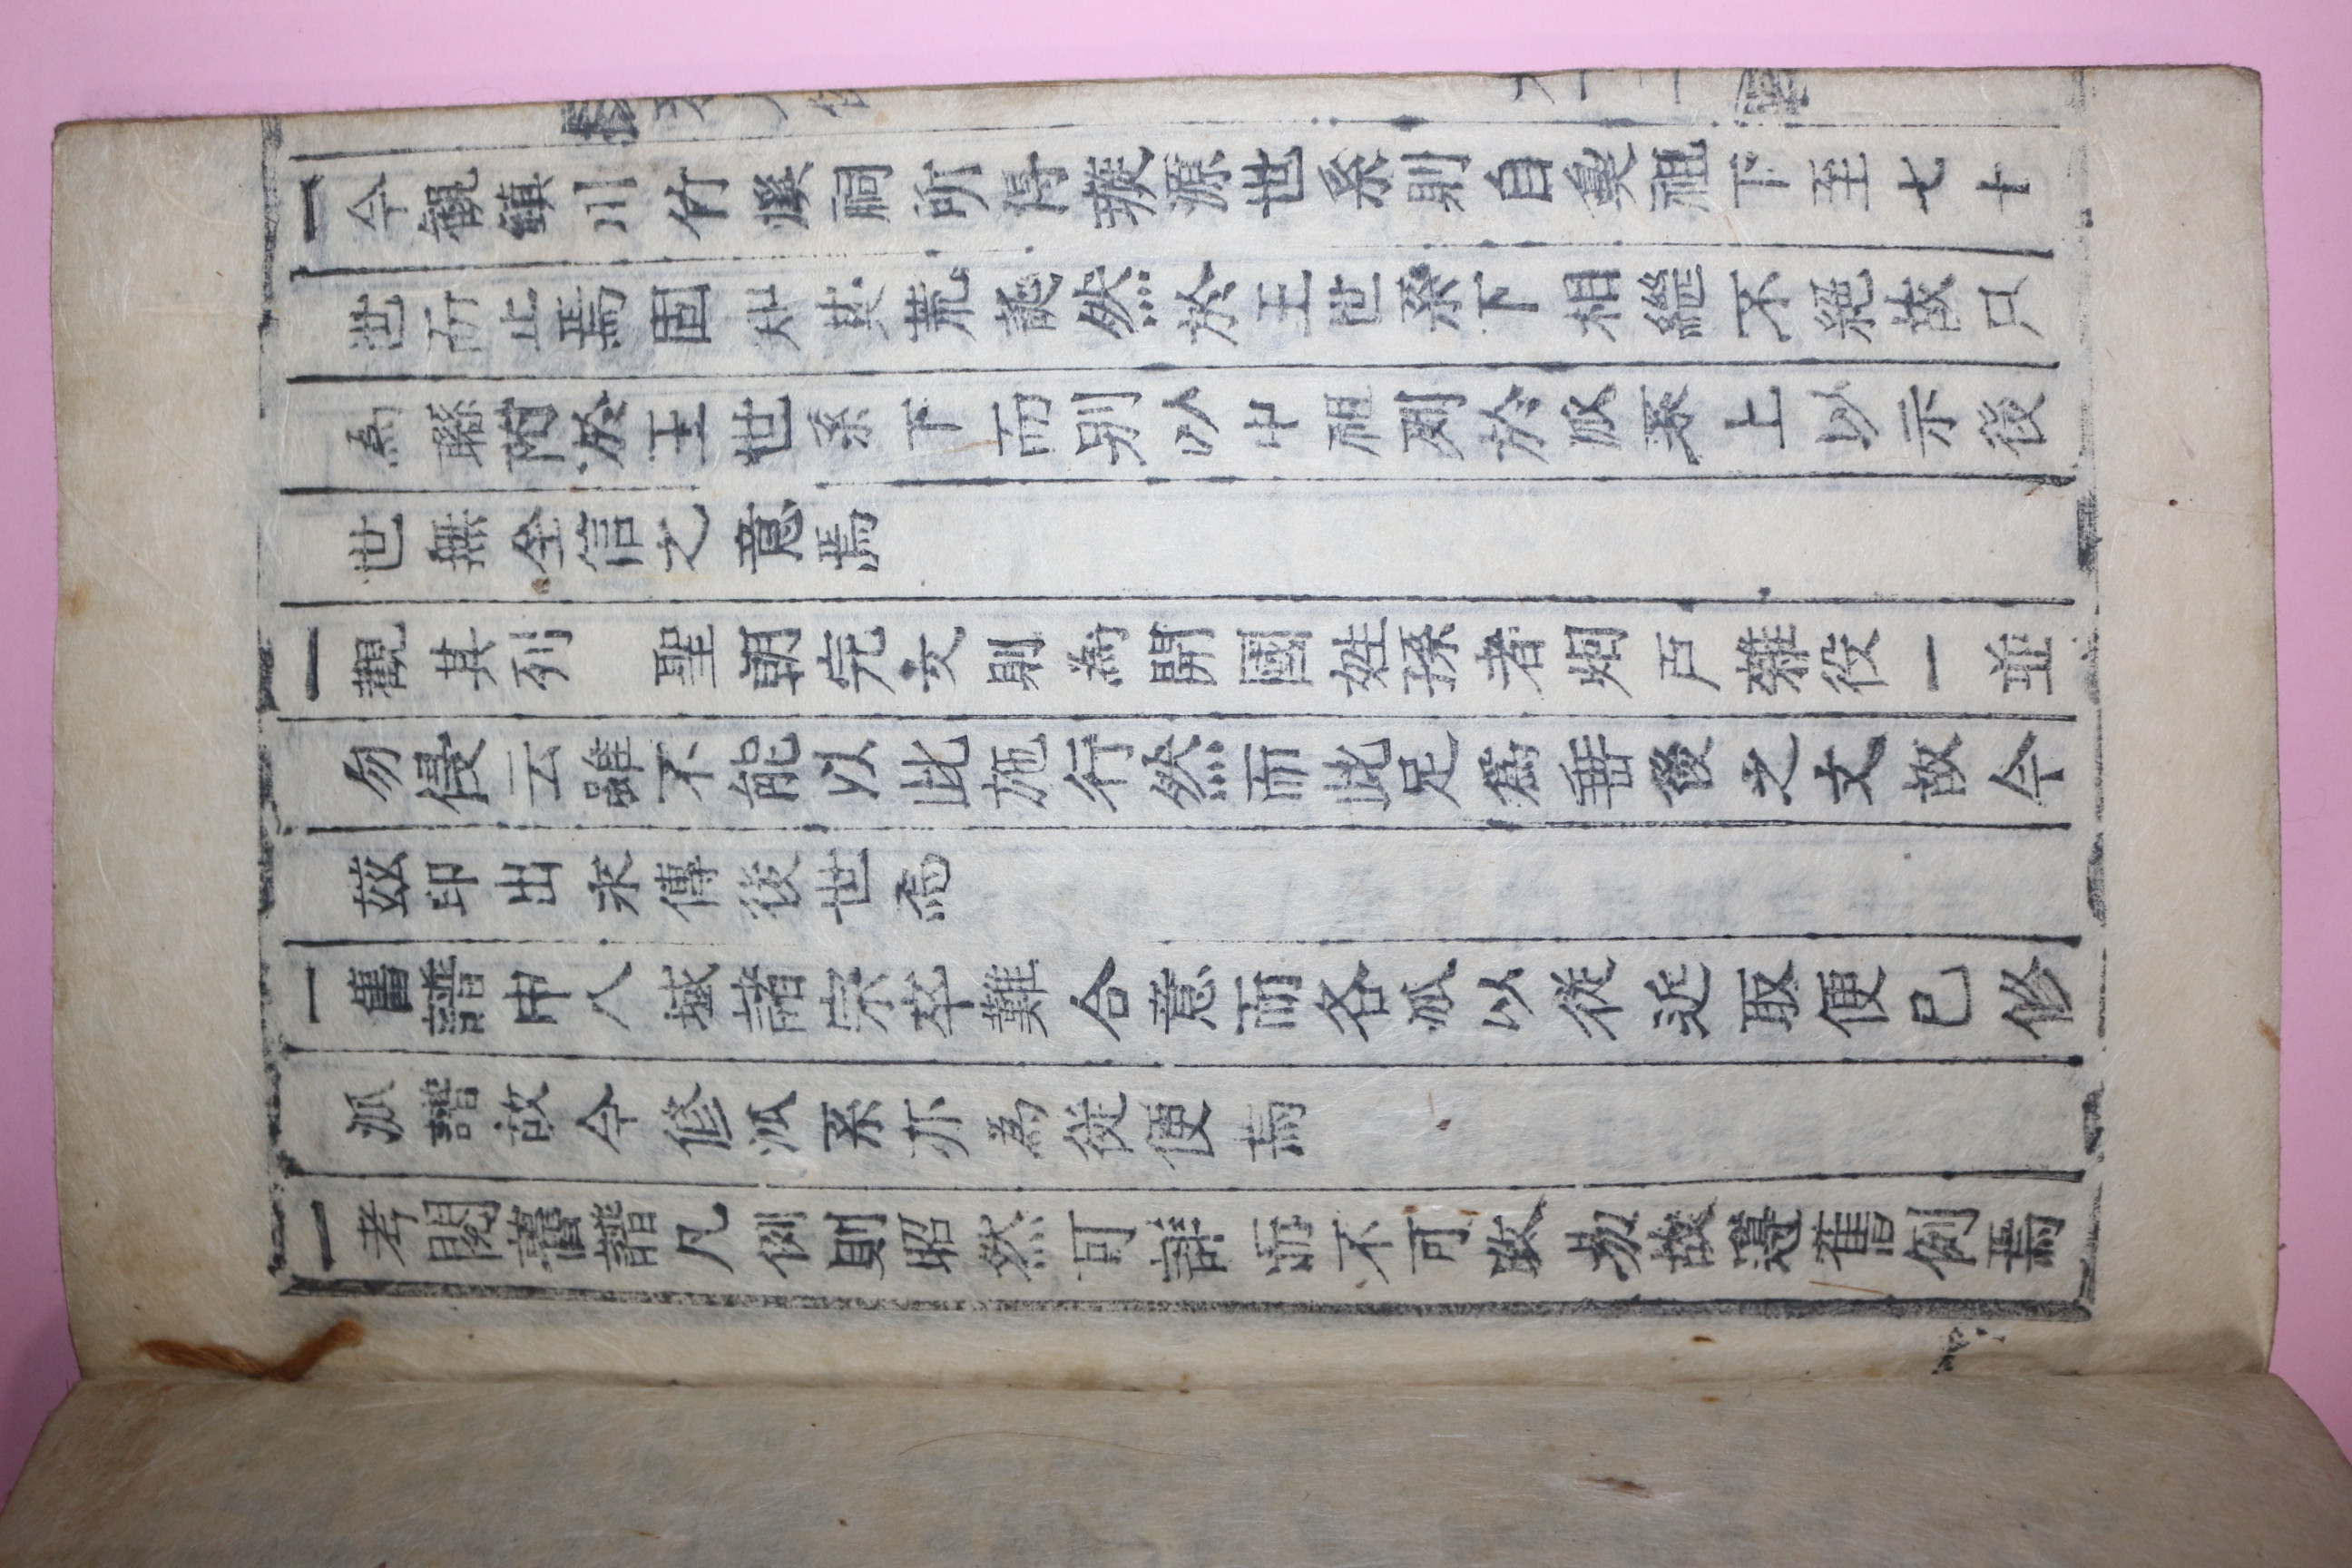 一今観鎮川竹溪祠所得璇源世系則自奠祖下至七十
世所止焉固知其荒誕然於王世系下相繼不絕故只
為聯附於王世系下而別以中祖列於派系上以示後
世無全信之意焉
一觀其列　聖朝完文則為開國姓孫者烟戸雜役一並
勿侵云雖不能以此施行然而此足爲垂後之文故今
茲印出永傳後世焉
一舊譜中八域諸宗卒難合意而各派以從近取便已修
派譜故今修派系亦為從便焉
一考閱舊譜凡例則昭然可詳而不可改易故遵舊例焉